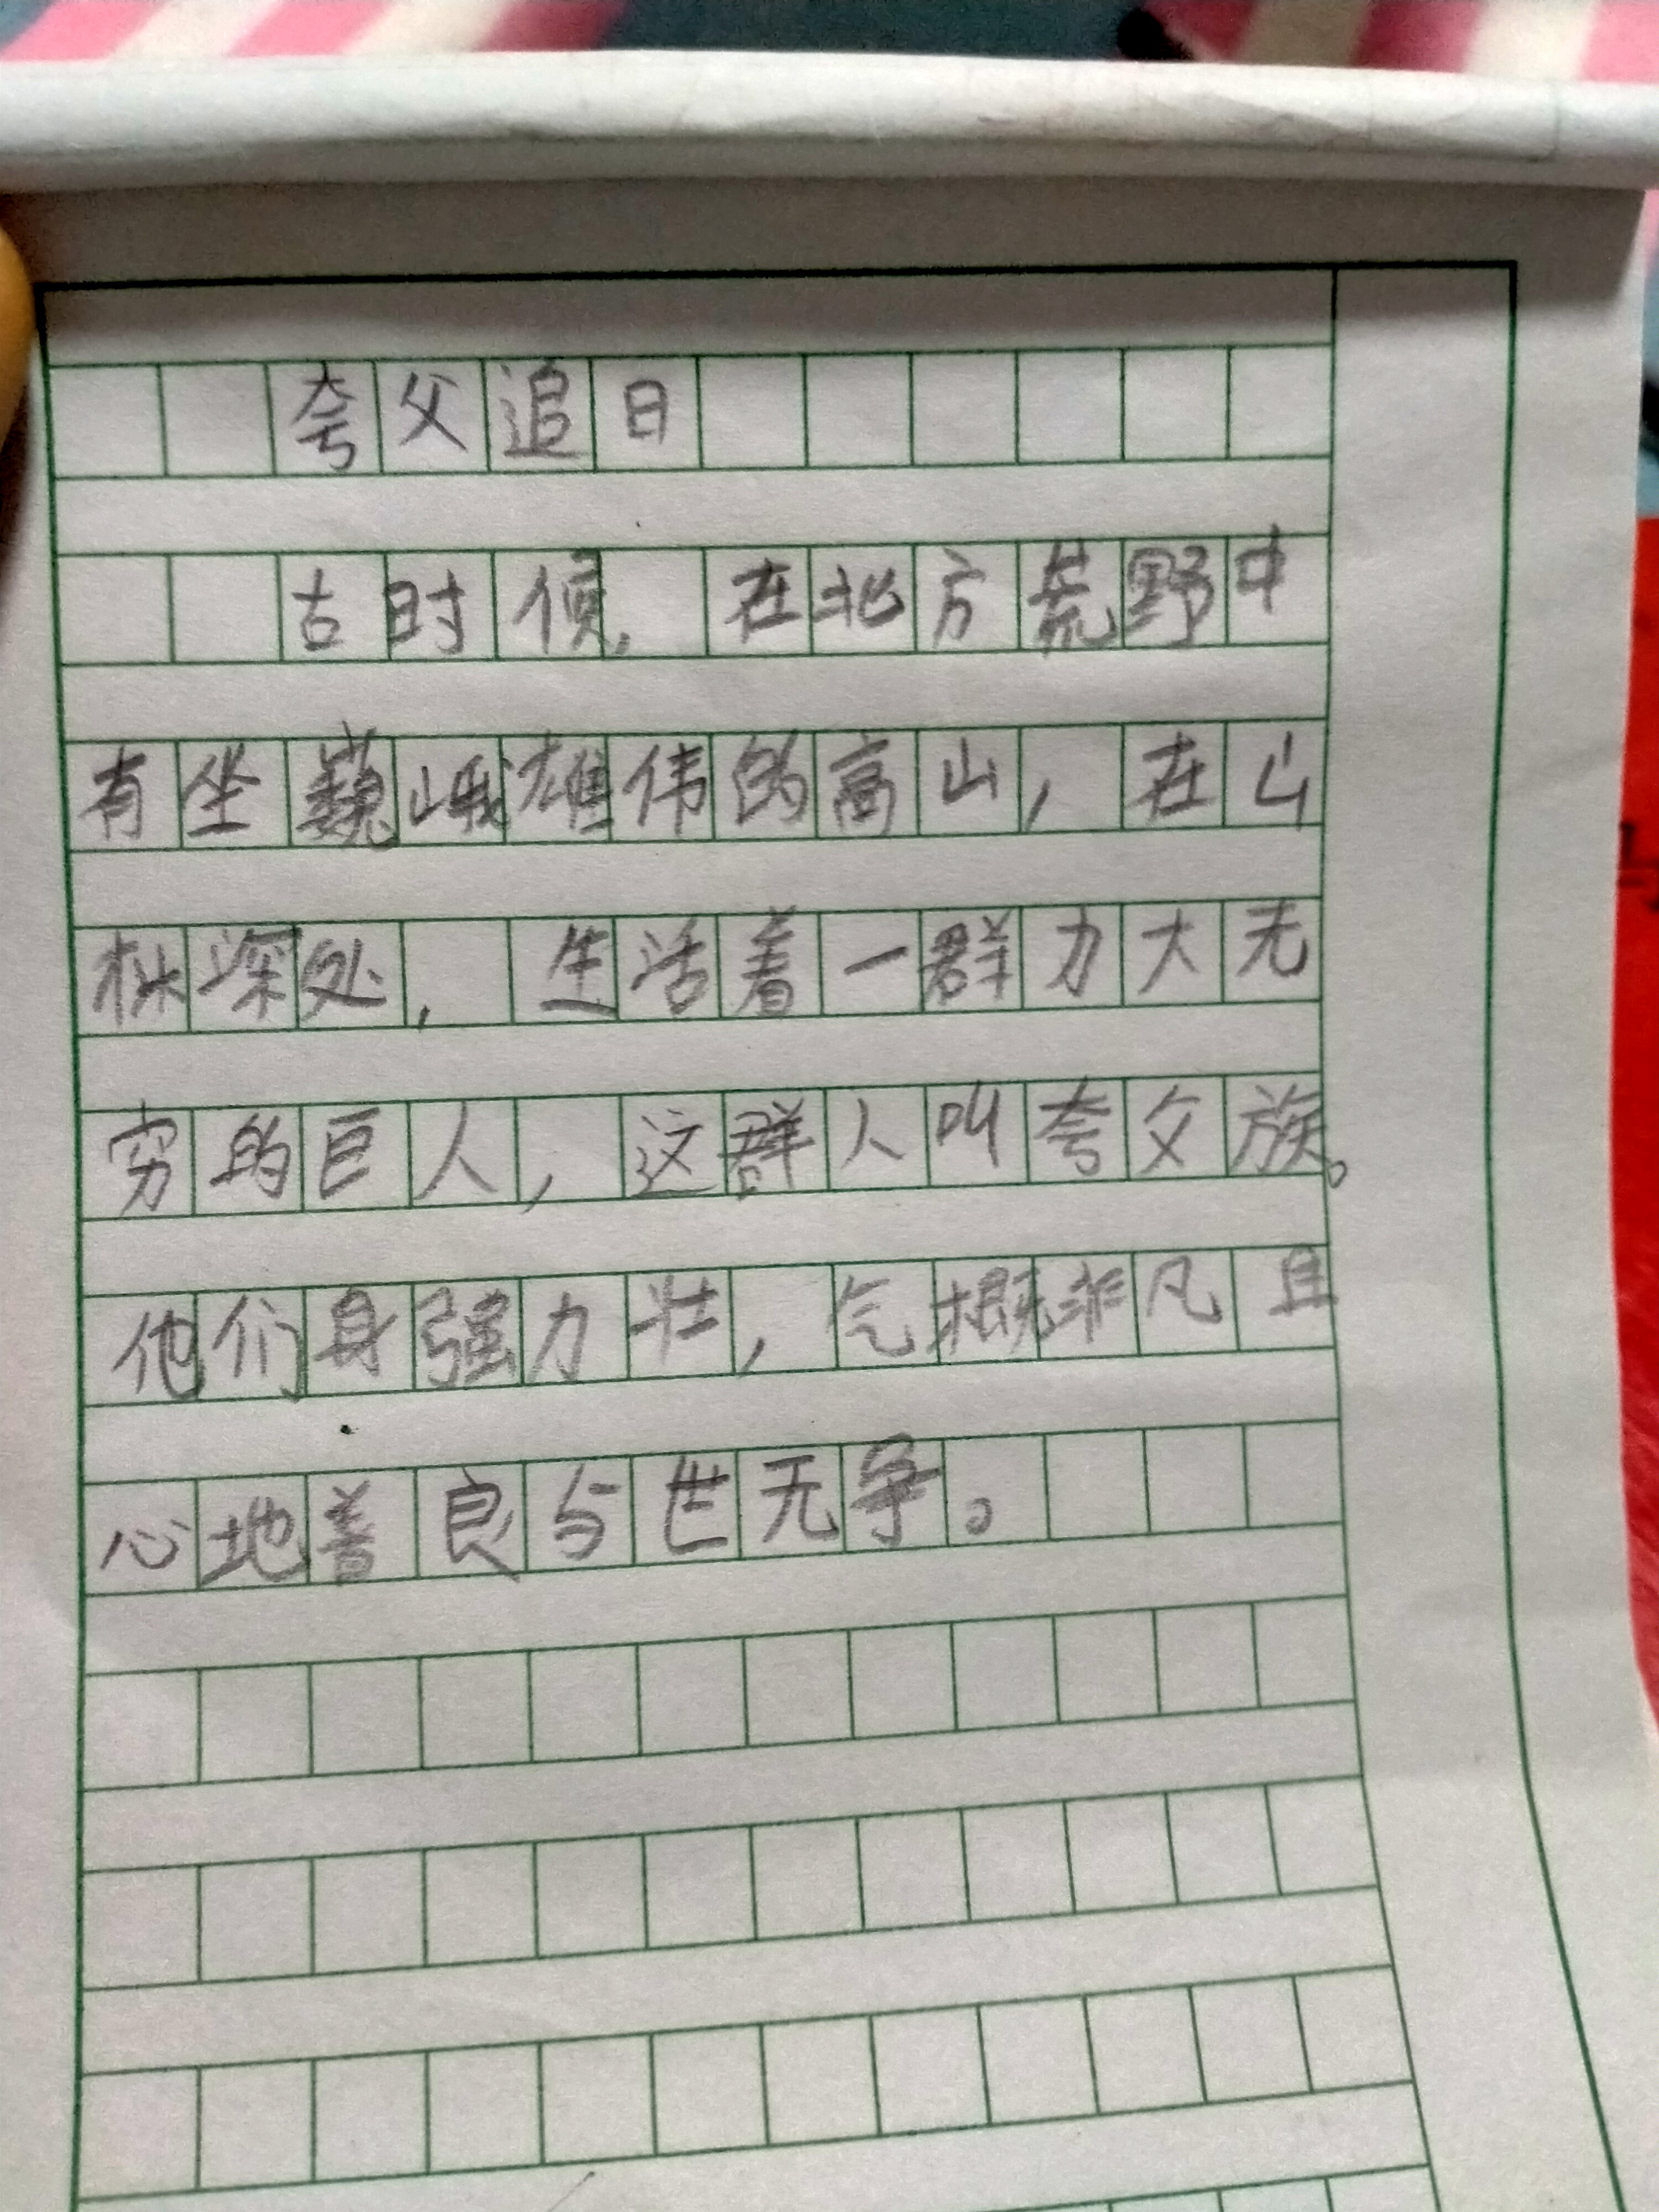 夸父追日
古时候，在北方荒野中
有坐巍峨雄伟的高山，在山
林深处，生活着一群力大无
穷的巨人，这群人叫夸父族。
他们身强力壮，气概非凡且
心地善良与世无争。